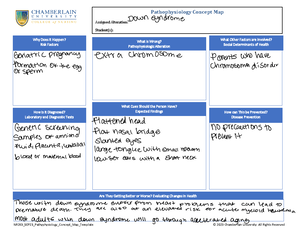 CHAMBERLAIN
UNIVERSITY
Pathophysiology Concept Map
Assigned Alteration: Down syndrome
Student(s):
Why Does it Happen?
Risk Factors
What is Wrong?
Pathophysiologic Alteration
What Other Factors are Involved?
Social Determinants of Health
Geriatric pregnancy
formation of the egg
or sperm
extra chromosome
Parents who have
chromosome disordr
How is it Diagnosed?
Laboratory and Diagnostic Tests
What Does Should the Person Have?
Expected Findings
How can This be Prevented?
Disease Prevention
Genetic screening
samples of amniot
fluid, placenta,
blood or maternal blood
flattened head
flat nasal bridge
slanted eyes
large tongue with small
lowset ears with a short neck
no precautions to
prevent it
Are They Getting Better or Worse? Evaluating Changes in Health
Those with down syndrome suffer from heart problems that can lead to
premature death. They are also at an elevated risk for acute myeloid
most adults with down syndrome will go through accelerated aging